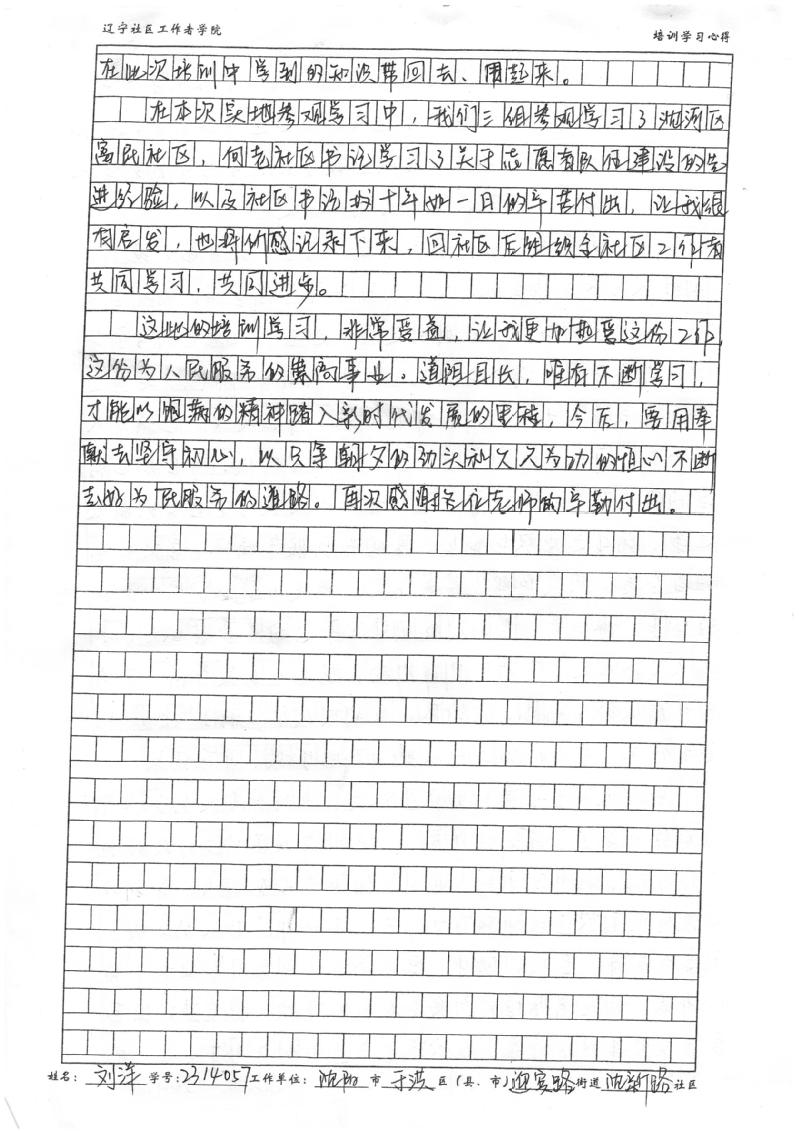 辽宁社区工作者学院
培训学习心得
在此次培训中学到的知识带回去、用起来。
在本次实地参观学习中，我们三组参观学习了沈河区
富民社区，向老社区书记学习了关于志愿者队伍建设的先
进经验，以及社区书记数十年如一日的辛苦付出，让我很
有启发，也将价感记录下来，回社区后组织全社区工作者
共同学习，共同进步。
这些的培训学习，非常受益，让我更加热爱这份工作，
这份为人民服务的崇高事业。道阻且长，唯有不断学习，
才能以饱满的精神踏入新时代发展的里程，今后，要用奉
献去坚守初心，以只争朝夕的劲头和久久为功的恒心不断
走好为民服务的道路。再次感谢各位老师的辛勤付出。
姓名：刘洋 学号：2314057 工作单位：沈阳市于洪区（县、市）迎宾路街道沈新路社区